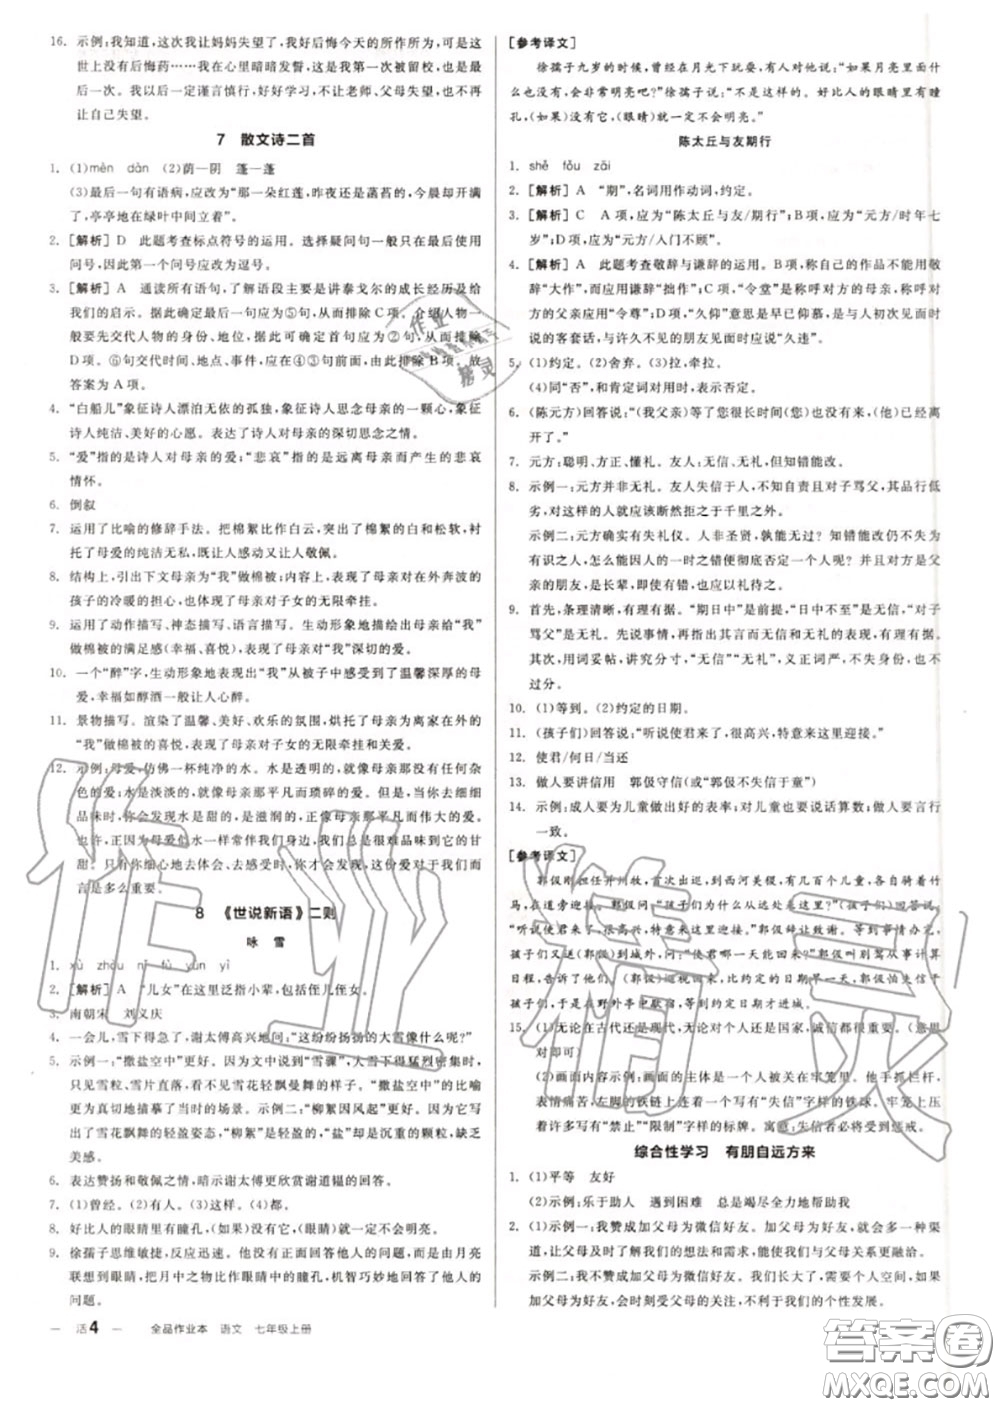 16. 示例:我知道,这次我让妈妈失望了,我好后悔今天的所作所为,可是这
世上没有后悔药……我在心里暗暗发誓,这是我第一次被留校,也是最
后一次。我以后一定谨言慎行,好好学习,不让老师、父母失望,也不再
让自己失望。
7 散文诗二首
1. (1)mèn dàn (2)荫—阴 篷—蓬
(3)最后一句有语病,应改为“那一朵红莲,昨夜还是菡萏的,今晨却开满
了,亭亭地在绿叶中间立着”。
2. [解析] D 此题考查标点符号的运用。选择疑问句一般只在最后使用
问号,因此第一个问号应改为逗号。
3. [解析] A 通读所有语句,了解语段主要是讲泰戈尔的成长经历及给
我们的启示。据此确定最后一句应为⑤句,从而排除C项。介绍人物一
般要先交代人物的身份、地位,据此可确定首句应为②句,从而排除
D项。⑥句交代时间、地点、事件,应在④③句前面,由此排除B项。故
答案为A项。
4. “白船儿”象征诗人漂泊无依的孤独,象征诗人思念母亲的一颗心,象征
诗人纯洁、美好的心愿。表达了诗人对母亲的深切思念之情。
5. “爱”指的是诗人对母亲的爱;“悲哀”指的是远离母亲而产生的悲哀
情怀。
6. 倒叙
7. 运用了比喻的修辞手法。把棉絮比作白云,突出了棉絮的白和松软,衬
托了母爱的纯洁无私,既让人感动又让人敬佩。
8. 结构上,引出下文母亲为“我”做棉被;内容上,表现了母亲对在外奔波的
孩子的冷暖的担心,也体现了母亲对子女的无限牵挂。
9. 运用了动作描写、神态描写、语言描写。生动形象地描绘出母亲给“我”
做棉被的满足感(幸福、喜悦),表现了母亲对“我”深切的爱。
10. 一个“醉”字,生动形象地表现出“我”从被子中感受到了温馨深厚的母
爱,幸福如醇酒一般让人心醉。
11. 景物描写。渲染了温馨、美好、欢乐的氛围,烘托了母亲为离家在外的
“我”做棉被的喜悦,表现了母亲对子女的无限牵挂和关爱。
12. 示例:母爱,仿佛一杯纯净的水。水是透明的,就像母亲那没有任何杂
色的爱;水是淡淡的,就像母亲那平凡而琐碎的爱。但是,当你去细细
品味时,会发现水是甜的,是滋润的,正像母亲那平凡而伟大的爱。
也许,正因为母爱似水一样常伴我们身边,我们才会不懂得品味它的甘
甜。只有你细心地去体会、去发现,你才会发现,这份爱对于我们而
言是多么重要。
8 《世说新语》二则
咏 雪
1. xù zhòu nǐ fù yùn yì
2. [解析] A “儿女”在这里泛指小辈,包括侄儿侄女。
3. 南朝宋 刘义庆
4. 一会儿,雪下得急了,谢太傅高兴地问:“这纷纷扬扬的大雪像什么呢?”
5. 示例一:“撒盐空中”更好。因为文中谈到“雪骤”,大天雪下得猛烈密集时,
只见雪粒,雪片直下,很难看见雪花轻盈曼舞的样子。“撒盐空中”的比喻
更为真切地描摹了当时的场景。示例二:“柳絮因风起”更好。它形象地写
出了雪花飘舞的轻盈姿态,“柳絮”是轻盈的,“盐”却是沉重的颗粒,缺乏
美感。
6. 表达赞扬和敬佩之情,暗示谢太傅更欣赏谢道韫的回答。
7. (1)曾经。(2)有人。(3)这样。(4)一定。
8. 好比人的眼睛里有瞳孔,(如果)没有它,(眼睛)就一定不会明亮。
9. 徐孺子思维敏捷,反应迅速。他没有直接回答他人的问题,而是由月亮
联想到眼睛,把月中之物比作眼睛中的瞳孔,机智巧妙地回答了他人的
问题。
— 活4 — 全品作业本 语文 七年级上册
[参考译文]
徐孺子九岁的时候,曾经在月光下玩耍,有人对他说:“如果月亮里面什
么也没有,会非常明亮吧?”徐孺子说:“不是这样的。好比人的眼睛里有瞳
孔,(如果)没有它,(眼睛)就一定不会明亮。”
陈太丘与友期行
1. shě fǒu zāi
2. [解析] A “期”,名词用作动词,约定。
3. [解析] C A项,应为“陈太丘与友/期行”;B项,应为“元方/时年七
岁”;D项,应为“元方/入门不顾”。
4. [解析] A 此题考查敬辞与谦辞的运用。B项,称自己的作品不能用敬
辞“大作”,而应用谦辞“拙作”;C项,“令堂”是称呼对方的母亲,称呼对
方的父亲应用“令尊”;D项,“久仰”意思是早已仰慕,是与人初次见面时
说的客套话,与许久不见的朋友见面时应说“久违”。
5. (1)约定。(2)舍弃。(3)拉,牵拉。
(4)同“否”,和肯定词对用时,表示否定。
6. (陈元方)回答说:“(我父亲)等了您很长时间(您)也没有来,(他)已经离
开了。”
7. 元方:聪明、方正、懂礼。友人:无信、无礼,但知错能改。
8. 示例一:元方并非无礼。友人失信于人,不知自责且对子骂父,其品行低
劣,对这样的人就应该断然拒之于千里之外。
示例二:元方确实有失礼仪。人非圣贤,孰能无过?知错能改仍不失为
有识之人,怎么能因人的一时之错便彻底否定一个人呢?并且对方是父
亲的朋友,是长辈,即使有错,也应以礼待之。
9. 首先,条理清晰,有理有据。“期日中”是前提,“日中不至”是无信,“对子
骂父”是无礼。先说事情,再指出其言而无信和无礼的表现,有理有据。
其次,用词妥帖,讲究分寸,“无信”“无礼”,义正词严,不失身份,也不
过分。
10. (1)等到。(2)约定的日期。
11. (孩子们)回答说:“听说使君来了,很高兴,特意来这里迎接。”
12. 使君/何日/当还
13. 做人要讲信用 郭伋守信(或“郭伋不失信于童”)
14. 示例:成人要为儿童做出好的表率;对儿童也要说话算数;做人要言行
一致。
[参考译文]
郭伋刚担任并州牧,首次出巡,到达西河美稷,有几百个儿童,各骑着竹
马,在道旁迎接。
15. (1)无论在古代还是现代,无论对个人还是国家,诚信都很重要。(意思
对即可)
(2)示例:画面内容:画面的主体是一个人被关在牢笼里。他手抓栏杆,
表情痛苦,左脚的铁链上连着一个写有“失信”字样的铁球。牢笼上压
着写有“禁止”“限制”字样的标牌。寓意:失信者必将受到惩罚。
综合性学习 有朋自远方来
1. (1)平等 友好
(2)示例:乐于助人 遇到困难 总是竭尽全力地帮助我
2. (1)示例一:我赞成加父母为微信好友。加父母为好友,就会多一种渠
道,让父母及时了解我们的想法和需求,能使我们与父母关系更融洽。
示例二:我不赞成加父母为微信好友。我们长大了,需要个人空间,加
父母为好友,会被过多的关注,不利于我们的个性发展。
作业精灵
答案圈
MXQE.COM